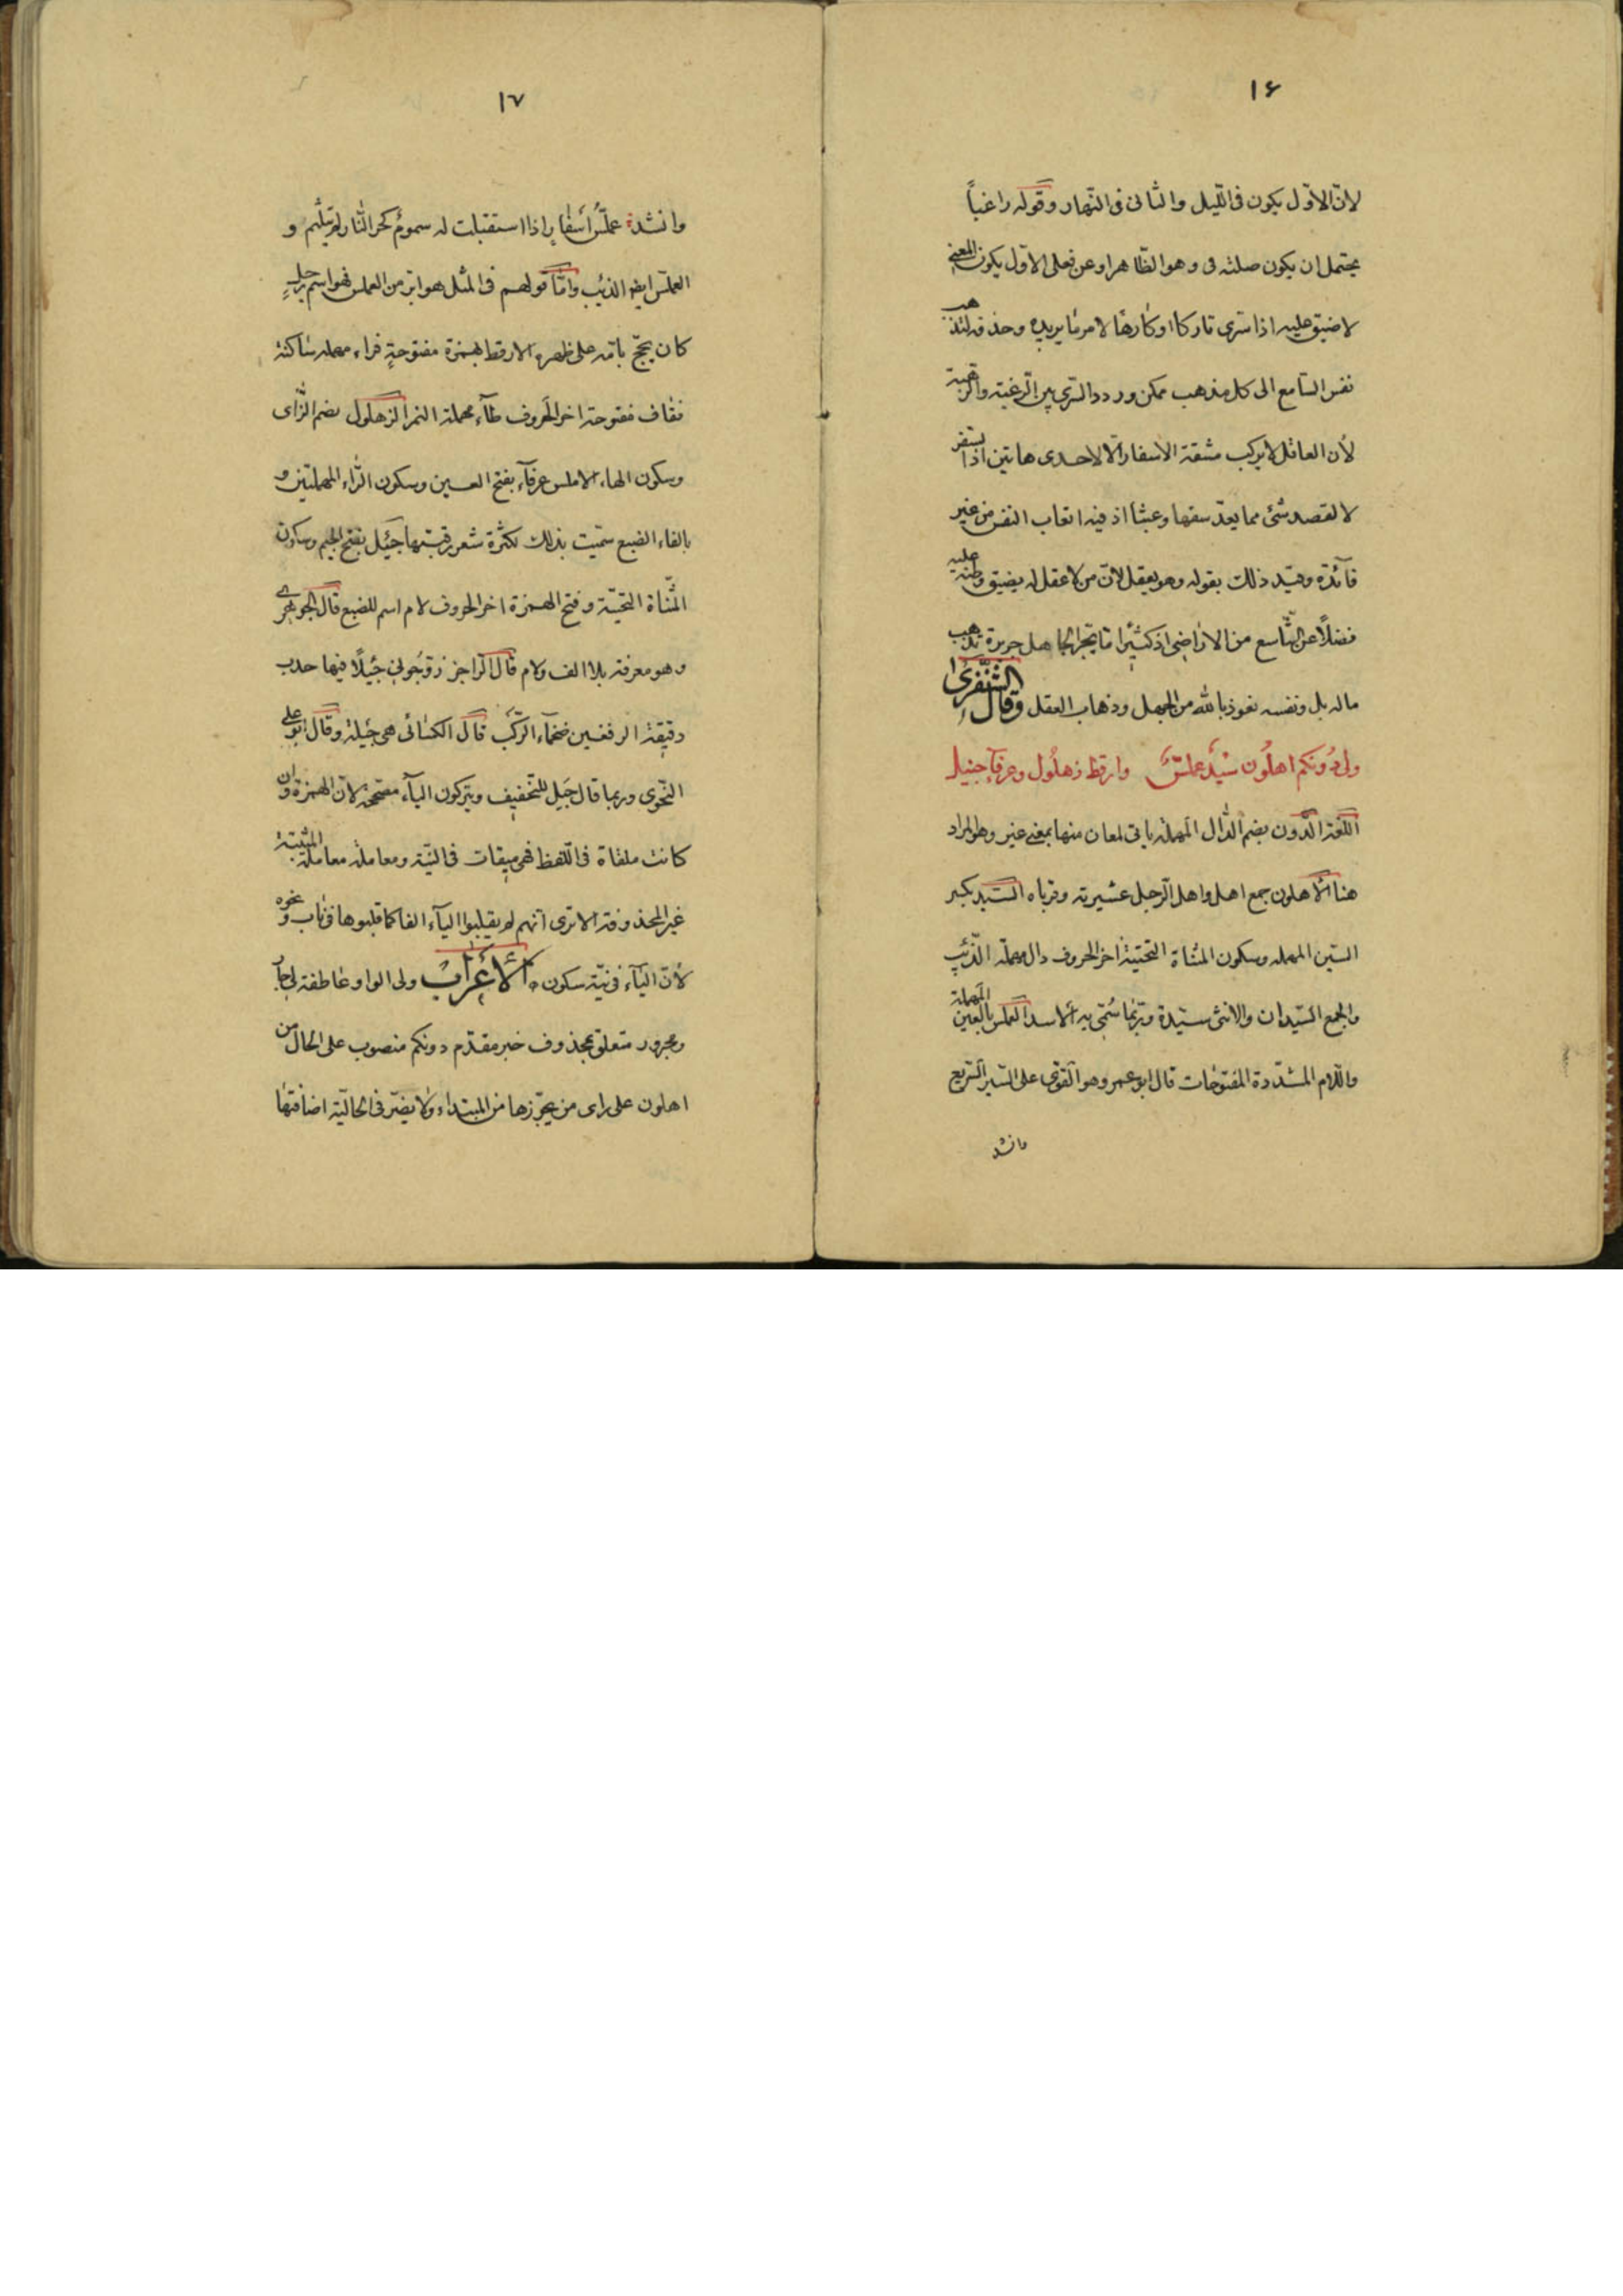 ١٦
لانّ الاوّل يكون فى اللّيل والثانى فى النّهار وقوله راغباً
يحتمل ان يكون صلته فى وهو الظاهر او عن فعلى الاوّل يكون المعنى
لا ضيق عليه اذا سرى تاركا او كارها لامر ما يريده وحذفه لتذهب
نفس السّامع الى كل مذهب ممكن وردد السّرى بين الرّغبة والرّهبة
لأن العاقل لا يركب مشقة الاسفار الّا لاحدى هاتين اذا لسفر
لا لقصد شئ مما يعدّ سفها وعبثا اذ فيه اتعاب النفس من غير
فآئدة وقيّد ذلك بقوله وهو يعقل لانّ من لا عقل له يضيق وطنه عليه
فضلاً عن الشّاسع من الاراضى اذ كثيرا ما يجر الجاهل جريرة تذهب
ماله بل ونفسه نعوذ بالله من الجهل وذهاب العقل وقال الشَّنْفَرى
ولى دُونكم اهلُون سيْدٌ عملسٌّ وارقط زهلُول وعرفآء جيئل
اللّغة الدّون بضم الدّال المهملة ياتى لمعان منها بمعنى غير وهو المراد
هنا الاهلون جمع اهل واهل الرّجل عشيرته وقرباه السّيد بكسر
السّين المهمله وسكون المثناة التحتيّة اخر الحروف دال مهملة الذّئب
والجمع السّيدان والانثى سيّدة وربّما سُمّى به الاسد العملس بالعين المهملة
واللّام المشدّدة المفتوحات قال ابو عمرو هو القوّى على السّير السّريع
وانشد
١٧
وانشد عملّسُ أسفار اذا استقبلت له سمومٌ كحر النّار لم يتلثّم و
العملّس ايضا الذئب وامّا قولهم فى المثل هو ابرّ من العملس فهو اسم رجلٍ
كان يحجّ بامّه على ظهره الارقط بهمزة مفتوحةٍ فراء مهمله ساكنة
فقاف مفتوحة اخر الحروف طآء مهملة النمر الزّهلول بضم الزّاى
وسكون الهاء الاملس عرفآء بفتح العين وسكون الرّاء المهملتين و
بالفاء الضبع سمّيت بذلك لكثرة شعر رقبتها جَيْئل بفتح الجيم وسكون
المثناة التحتيّة وفتح الهمزة اخر الحروف لام اسم للضبع قال الجوهرى
وهو معرفة بلا الف ولام قال الرّاجز زوّجُونى جيئلًا فيها حدب
دقيقة الرفغين ضخمآء الركب قال الكسائى هى جيئلة وقال ابو على
النّحوى وربما قال جَيل للتّخفيف ويتركون اليآء مصحّحة لانّ الهمزة وان
كانت ملقاة فى اللّفظ فهى مبقات فى النيّة ومعاملة معاملة المثبتة
غير المحذوفة الا ترى انّهم لم يقلبوا اليآء الفا كما قلبوها فى ناب ونحوه
لأنّ اليآء فى نيّة سكون ه الأعْرَابُ ولى الواو عاطفة لى جار
ومجرور متعلق بمحذوف خبر مقدّم دونكم منصوب على الحال من
اهلون على راى من يجوّزها من المبتداء ولا يضرّ فى الحاليّة اضافتها